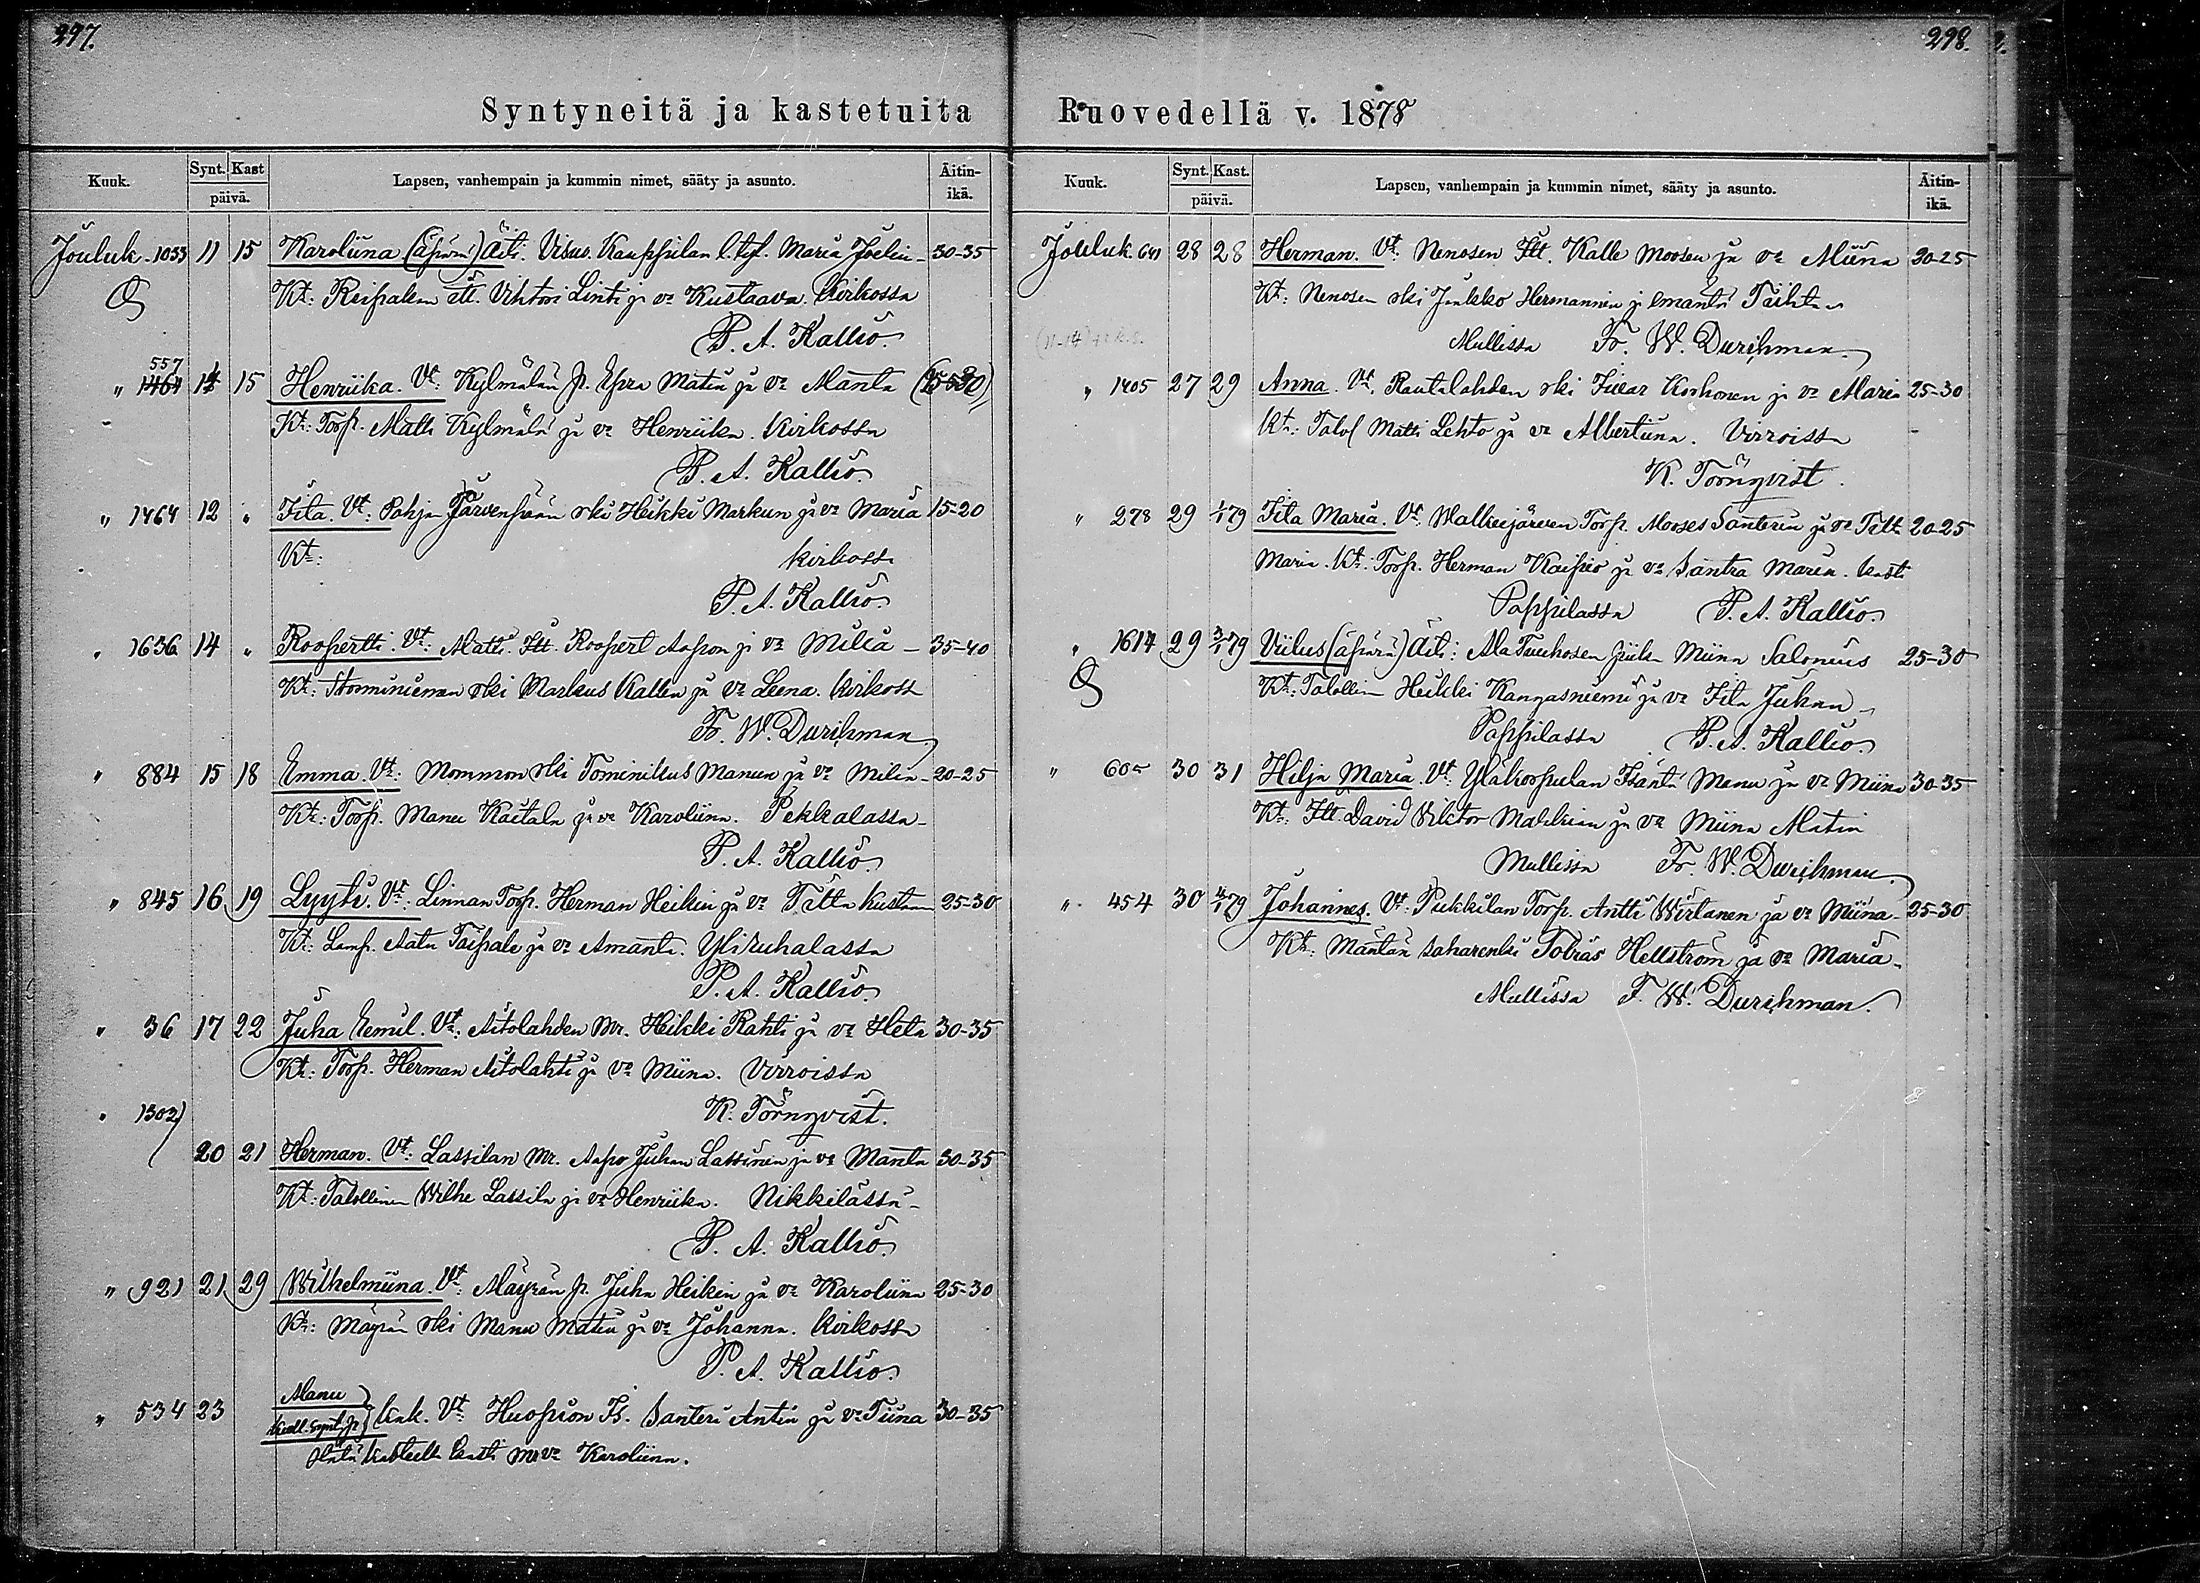 297.
Syntyneitä ja kastetuita
Kuuk. Synt. Kast päivä. Lapsen, vanhempain ja kummin nimet, sääty ja asunto. Äitin-ikä.
Jouluk. 1033 11 15 Karoliina (äpärä) Äiti. Visuv. Kauppilan l. tyt. Maria Joelin 30-35
Kt: Reipakan itt. Vihtori Linti ja vo Kustaava. Kirkossa
P. A. Kallio.
557
" 1464 14 15 Henriika. Vt: Kylmälän p. Epra Matin ja vo Manta (25-30)
Kt: Torp. Matti Kylmälä ja vo Henriika. Kirkossa
P. A. Kallio.
" 1464 12 " Fita. Vt: Pohja Järvenpään rki Heikki Markun ja vo Maria 15-20
Kt: kirkossa
P. A. Kallio.
" 1636 14 " Roopertti. Vt: Matti. Itt. Roopert Aapon ja vo Milia - 35-40
Kt: Storminiemen rki Markus Kallen ja vo Leena. Kirkoss
Fr. W. Durchman
" 884 15 18 Emma. Vt: Mommon rki Tominikus Manun ja vo Milia - 20-25
Kt: Torp. Manu Kaitala ja vo Karoliina. Pekkalassa
P. A. Kallio
" 845 16 19 Lyyti. Vt: Linnan Torp. Herman Heikin ja vo Fiitta Kustaan 25-30
Kt: Lamp. Aatu Taipale ja vo Amanta. Yliruhalassa
P. A. Kallio
" 36 17 22 Juha Eemil. Vt: Aitolahden Mr. Heikki Rahti ja vo Heta 30-35
Kt: Torp. Herman Aitolahti ja vo Miina. Virroissa
K. Törnqvist.
" 1302
20 21 Herman. Vt: Lassilan Mr. Aapo Juhan Lassinen ja vo Manta 30-35
Kt: Talollinen Wilhe Lassila ja vo Henriika. Nikkilässä
P. A. Kallio.
" 921 21 29 Wilhelmiina. Vt: Mäyrän p. Juha Heikin ja vo Karoliina 25-30
Kt: Mäyrän rki Manu Matin ja vo Johanna. Kirkossa
P. A. Kallio.
Manu
" 534 23 Kuoll. synt. p. Kak. Vt: Huopion Is. Santeri Antin ja vo Tiina 30-35
Hätä kasteella kasti mr vo Karoliina.
298.
Ruovedellä v. 1878
Kuuk. Synt. Kast. päivä. Lapsen, vanhempain ja kummin nimet, sääty ja asunto. Äitin-ikä.
Jouluk. 641 28 28 Herman. Vt: Nenosen Itt. Kalle Moosen ja vo Miina 20-25
Kt: Nenosen rki Jaakko Hermannin ja emäntä
Mullissa Fr. W. Durchman.
" 1405 27 29 Anna. Vt. Rautalahden rki Korhonen ja vo Maria 25-30
Kt: Talol Matti Lehto ja vo Albertiina. Virroissa
K. Törnqvist.
" 278 29 1/1 79 Fita Maria. Vt. Walkeejärven Torp. Mooses Santerin ja vo Fitta 20-25
Maria. Kt: Torp. Herman Kaipio ja vo Santra Maria. Kasti
Pappilassa P. A. Kallio.
" 1614 29 3/1 79 Viilus (äpärä) Äiti: Ala Tuuhosen piika Miina Salonius 25-30
Kt: Talollinen Heikki Kangasniemi ja vo Fita Juhan
Pappilassa P. A. Kallio.
" 605 30 31 Hilja Maria. Vt. Yläkorpulan Isäntä Manu ja vo Miina 30-35
Kt: Itt. David Viktor Mahkian ja vo Miina Matin
Mullissa Fr. W. Durchman.
" 454 30 4/1 79 Johannes. Vt: Pukkilan Torp. Antti Wirtanen ja vo Miina 25-30
Kt: Mäntän saharenki Tobias Hellström ja vo Maria
Mullissa F. W. Durchman.